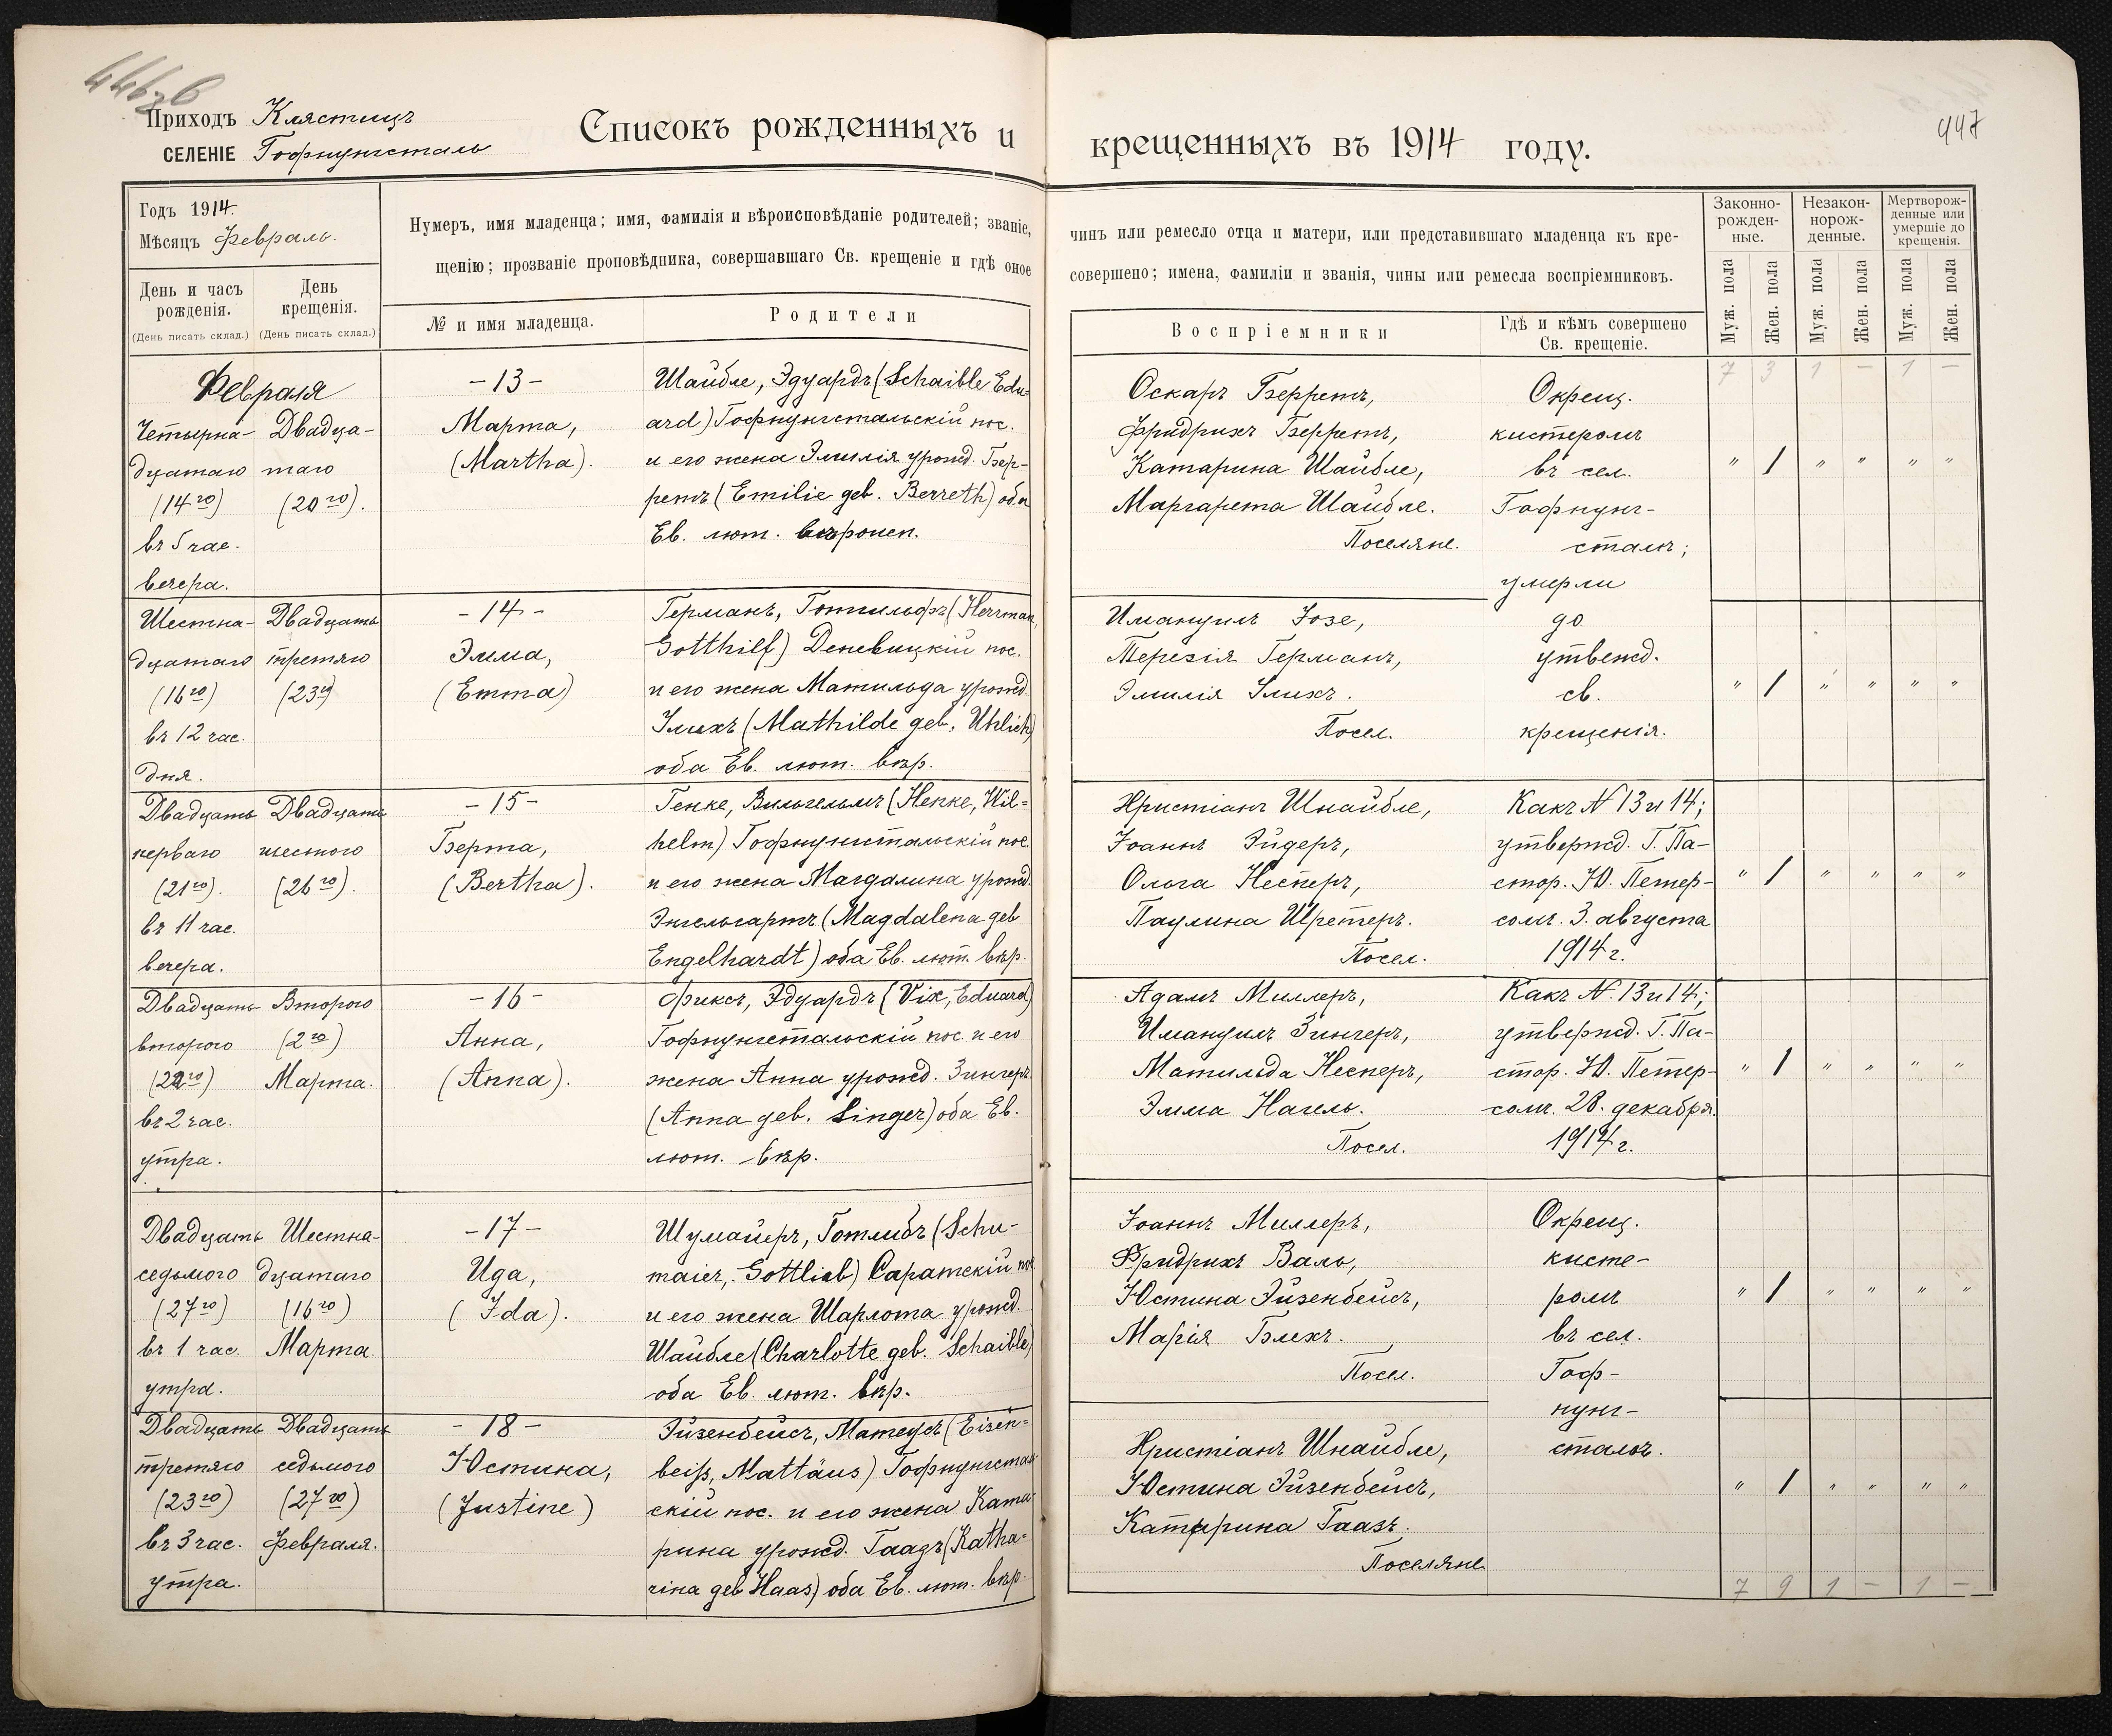 Приходъ Клястицъ
СЕЛЕНІЕ Гофнунгсталь
Списокъ рожденныхъ и
крещенныхъ въ 1914 году.
447
Годъ 1914.
Мѣсяцъ Февраль.
День и часъ рожденія.
(День писать склад.)
День крещенія.
(День писать склад.)
Нумеръ, имя младенца; имя, фамилія и вѣроисповѣданіе родителей; званіе,
щенію; прозваніе проповѣдника, совершавшаго Св. крещеніе и гдѣ оное
№ и имя младенца.
Родители
чинъ или ремесло отца и матери, или представившаго младенца къ кре-
совершено; имена, фамиліи и званія, чины или ремесла воспріемниковъ.
Воспріемники
Гдѣ и кѣмъ совершено
Св. крещеніе.
Законно-
рожден-
ные.
Незакон-
норож-
денные.
Мертворож-
денные или
умершіе до
крещенія.
Муж. пола
Жен. пола
Муж. пола
Жен. пола
Муж. пола
Жен. пола
7 3 1 - 1 -
Февраля
Четырна-
дцатаго
(14го)
въ 5 час.
вечера.
Двадца-
таго
(20го).
-13-
Марта,
(Martha).
Шайбле, Эдуардъ (Schaible Edu=
ard) Гофнунгстальскій пос.
и его жена Эмилія урожд. Бер-
ретъ (Emilie geb. Berreth) оба
Ев. лют. вѣроисп.
Оскаръ Берретъ,
Фридрихъ Берретъ,
Катарина Шайбле,
Маргарета Шайбле.
Поселяне.
Окрещ.
кистеромъ
въ сел.
Гофнунг-
сталъ;
умерли
" 1 " " " "
Шестна-
дцатаго
(16го)
въ 12 час.
дня.
Двадцать
третяго
(23го)
-14-
Эмма,
(Emma)
Германъ, Готгильфъ (Herrman,
Gotthilf) Деневицкій пос.
и его жена Матильда урожд.
Улихъ (Mathilde geb. Uhlich)
оба Ев. лют. вѣр.
Имануилъ Іозе,
Терезія Германъ,
Эмилія Улихъ.
Посел.
до
утвежд.
св.
крещенія.
" 1 " " " "
Двадцать
перваго
(21го).
въ 11 час.
вечера.
Двадцать
шестого
(26го).
-15-
Берта,
(Bertha).
Генке, Вильгельмъ (Henke, Wil=
helm) Гофнунгстальскій пос.
и его жена Магдалина урожд.
Энгельгартъ (Magdalena geb
Engelhardt) оба Ев. лют. вѣр.
Христіанъ Шнайбле,
Іоаннъ Эйдеръ,
Ольга Несперъ,
Паулина Шретеръ.
Посел.
Какъ N 13 и 14;
утвержд. Г. Па-
стор. Ю. Петер-
сомъ. 3. августа
1914 г.
" 1 " " " "
Двадцать
второго
(22го)
въ 2 час.
утра.
Второго
(2го)
Марта.
-16-
Анна,
(Anna).
Фиксъ, Эдуардъ (Vix, Eduard)
Гофнунгстальскій пос. и его
жена Анна урожд. Зингеръ
(Anna geb. Singer) оба Ев.
лют. вѣр.
Адамъ Миллеръ,
Имануилъ Зингеръ,
Матильда Несперъ,
Эмма Нагель.
Посел.
Какъ N. 13 и 14;
утвержд. Г. Па-
стор. Ю. Петер-
сомъ. 28. декабря.
1914 г.
" 1 " " " "
Двадцать
седьмого
(27го)
въ 1 час.
утра.
Шестна-
дцатаго
(16го)
Марта.
-17-
Ида,
(Ida).
Шумайеръ, Готлибъ (Schu-
maier, Gottlieb) Саратскій пос
и его жена Шарлота урожд.
Шайбле (Charlotte geb. Schaible)
оба Ев. лют. вѣр.
Іоаннъ Миллеръ,
Фридрихъ Валь,
Юстина Эйзенбейсъ,
Марія Блехъ.
Посел.
Окрещ.
кисте-
ромъ
въ сел.
Гоф-
нунг-
сталъ.
" 1 " " " "
Двадцать
третяго
(23го)
въ 3 час.
утра.
Двадцать
седьмого
(27го)
Февраля.
-18-
Юстина,
(Justine)
Эйзенбейсъ, Матеусъ (Eisen=
beiß, Mattäus) Гофнунгсталь
скій пос. и его жена Ката
рина урожд. Гаазъ (Katha=
rina geb Haas) оба Ев. лют. вѣр.
Христіанъ Шнайбле,
Юстина Эйзенбейсъ,
Катарина Гаазъ.
Поселяне
" 1 " " " "
7 9 1 - 1 -